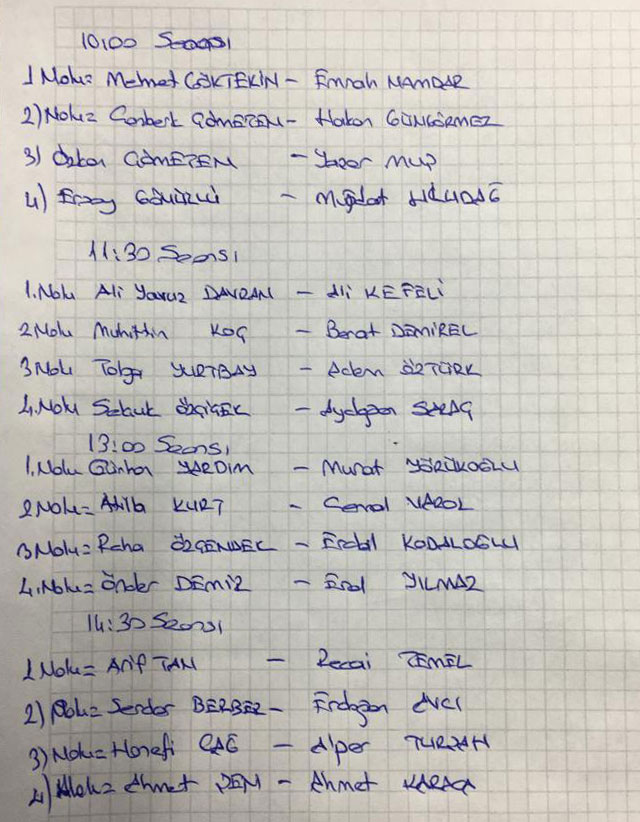 10:00 Seansı
1 Nolu= Mehmet GÖKTEKİN - Emrah NAMDAR
2) Nolu= Canberk GÖMEZEN - Hakan GÜNGÖRMEZ
3) Özkan GÖMEZEN - Yaşar MUŞ
4) Ersoy - Müjdat
11:30 Seansı
1. Nolu Ali Yavuz DAVRAN - Ali KEFELİ
2 Nolu Muhittin KOÇ - Berat DEMİREL
3 Nolu Tolga YURTBAY - Adem ÖZTÜRK
4. Nolu Selçuk ÖZÇİÇEK - Aydoğan SARAÇ
13:00 Seansı
1. Nolu Günhan YARDIM - Murat YÖRÜKOĞLU
2 Nolu= Atilla KURT - Cemal VAROL
3 Nolu= Raha - Erdal KODALOĞLU
4. Nolu= Önder DEMİZ - Erol YILMAZ
14:30 Seansı
1 Nolu= Arif TAN - Recai TEMEL
2) Nolu= Serdar BERBER - Erdoğan AVCI
3) Nolu= Hanefi ÇAĞ - Alper TURHAN
4) Nolu= Ahmet - Ahmet KARACA